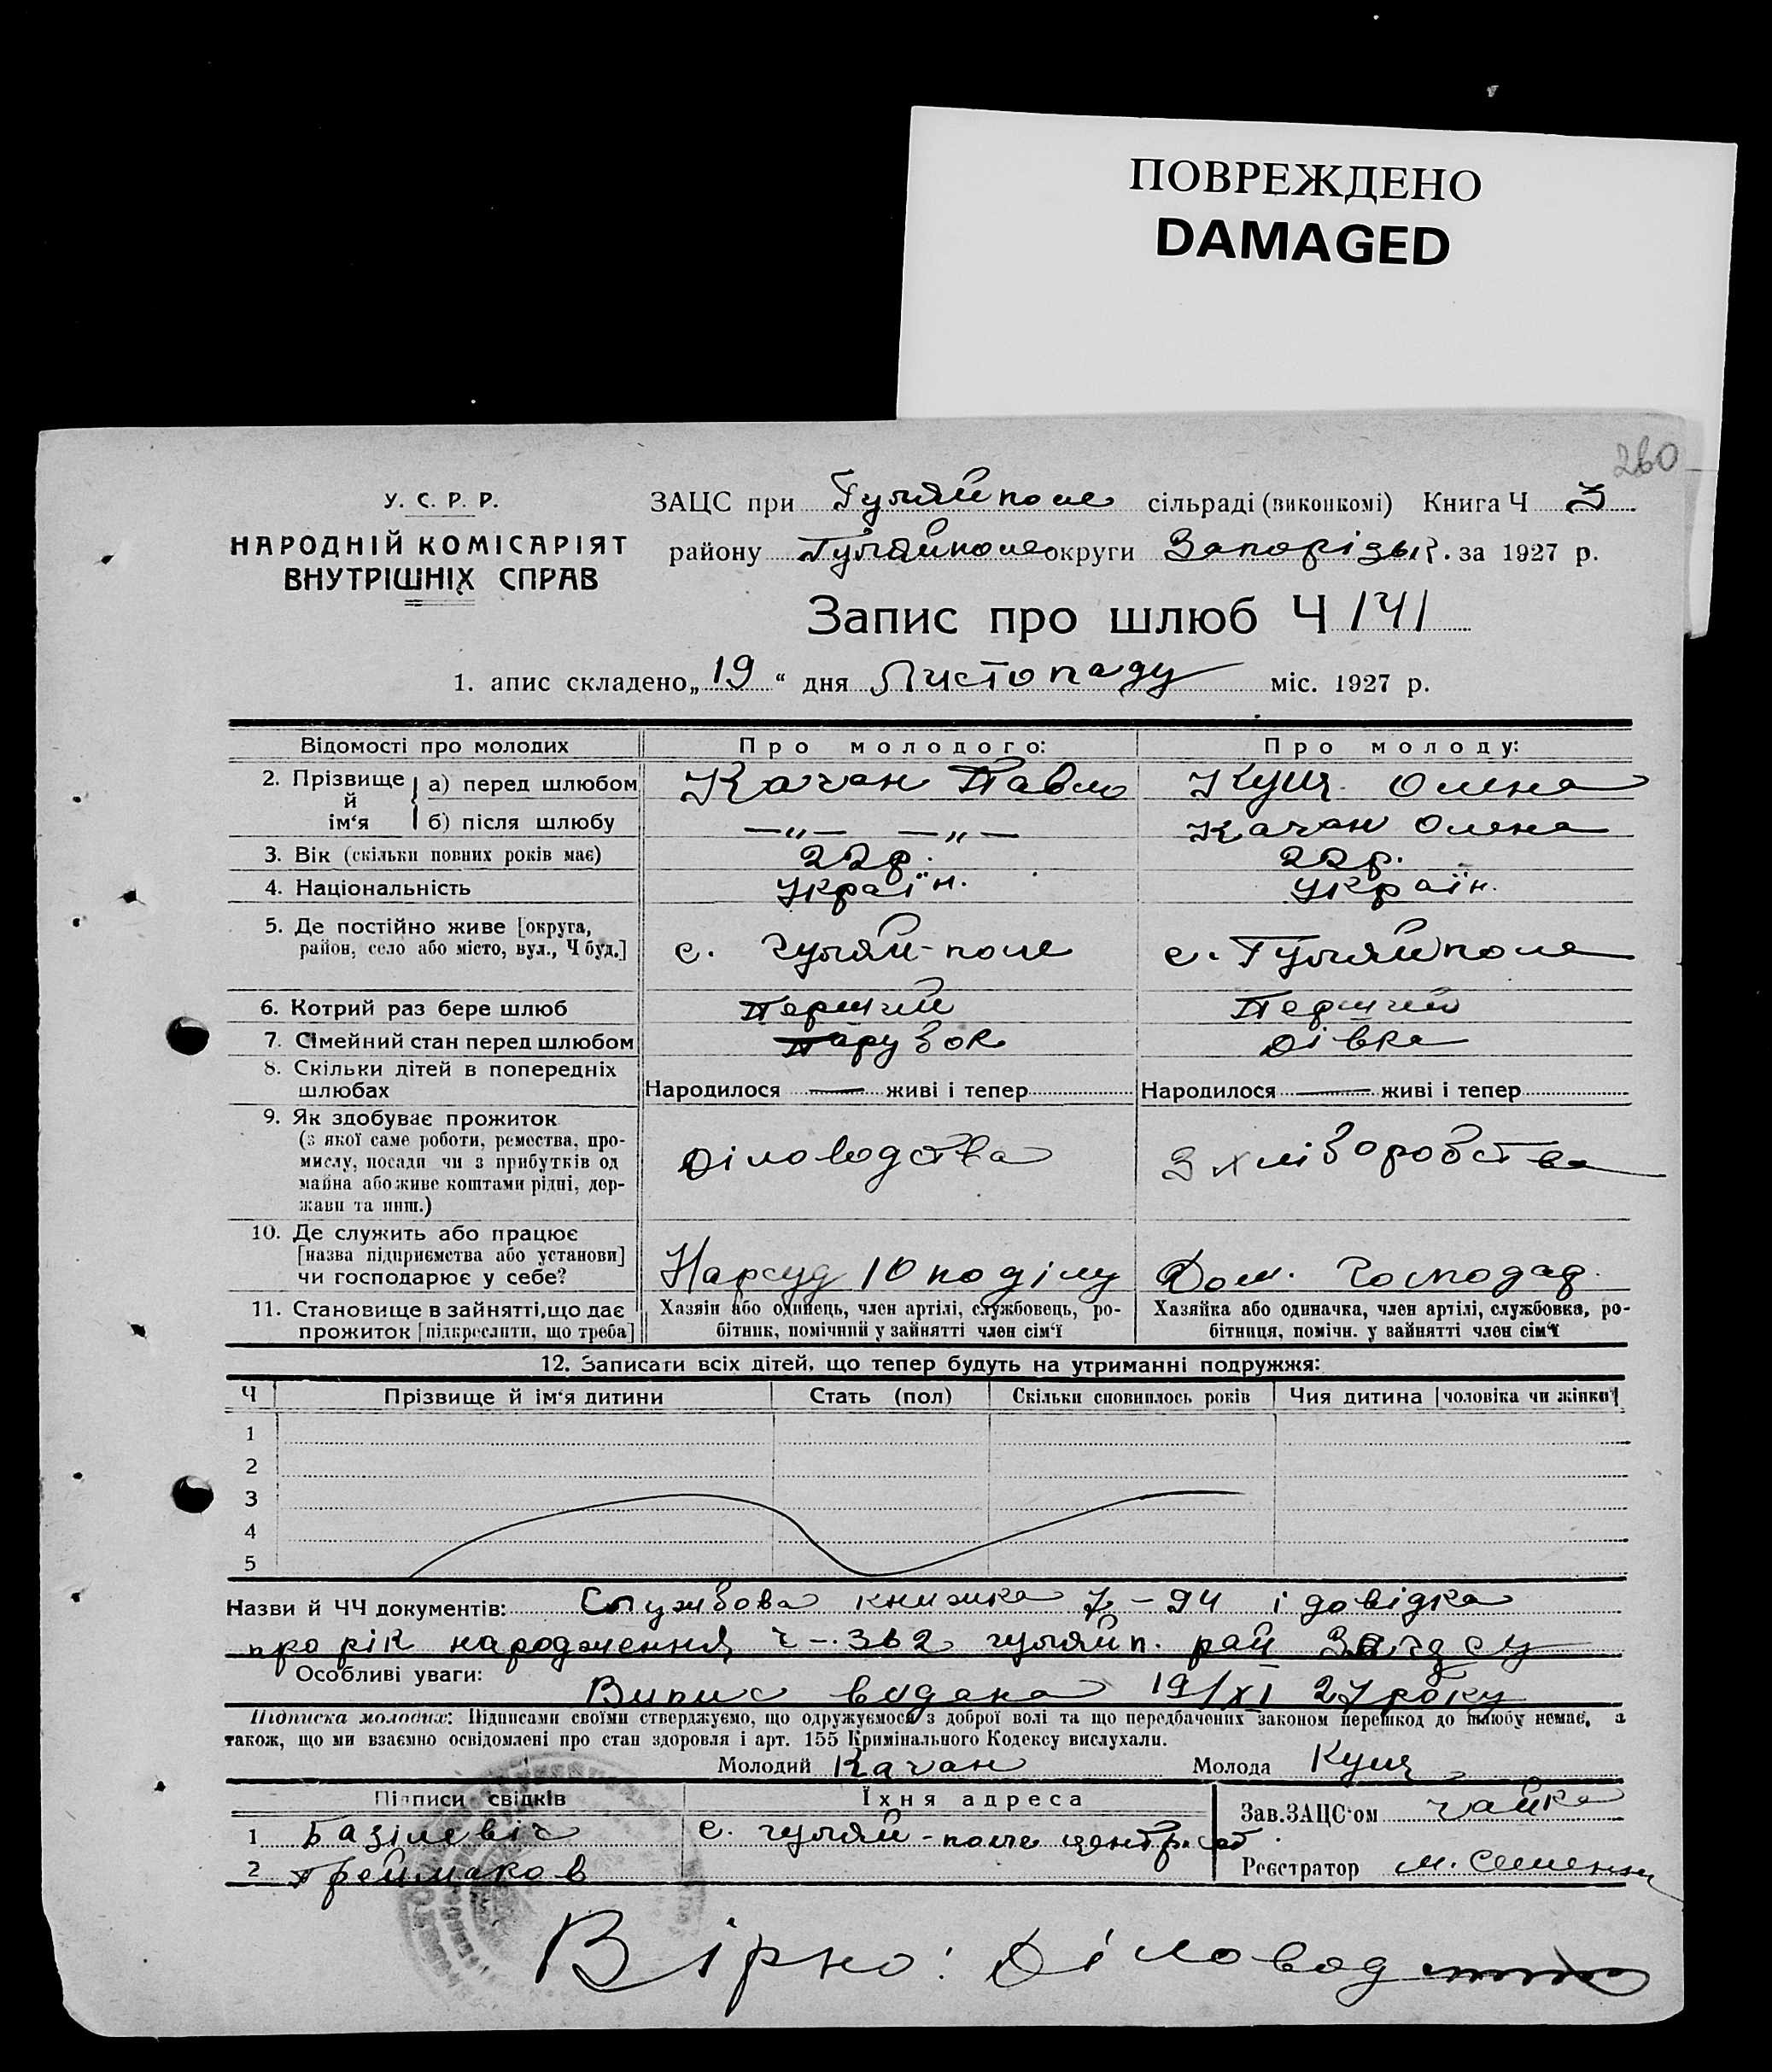 ПОВРЕЖДЕНО
DAMAGED
260
У. С. Р. Р.
НАРОДНІЙ КОМІСАРІЯТ
ВНУТРІШНІХ СПРАВ
ЗАЦС при Гуляйполе сільраді (виконкомі) Книга Ч 3
району Гуляйполе округи Запорізьк. за 1927 р.
Запис про шлюб Ч 141
1. апис складено „ 19 “ дня Листопаду міс. 1927 р.
Відомості про молодих Про молодого: Про молоду:
2. Прізвище й ім‘я а) перед шлюбом Качан Павло Кущ Олена
б) після шлюбу —„— —„— Качан Олена
3. Вік (скільки повних років має) 22 р. 22 р.
4. Національність Україн. Україн.
5. Де постійно живе [округа,
район, село або місто, вул., Ч буд.] с. Гуляй-поле с. Гуляйполе
6. Котрий раз бере шлюб Перший Перший
7. Сімейний стан перед шлюбом Парубок Дівка
8. Скільки дітей в попередніх
шлюбах Народилося — живі і тепер Народилося — живі і тепер
9. Як здобуває прожиток
(з якої саме роботи, ремества, про-
мислу, посади чи з прибутків од
майна або живе коштами рідні, дер-
жави та инш.) Діловодства З хліборобства
10. Де служить або працює
[назва підприємства або установи]
чи господарює у себе? Нарсуд 10 поділу Дом. Господар.
11. Становище в зайнятті, що дає
прожиток [підкреслити, що треба]
Хазяїн або одинець, член артілі, службовець, ро-
бітник, помічний у зайнятті член сім‘ї
Хазяйка або одиначка, член артілі, службовка, ро-
бітниця, помічн. у зайнятті член сім‘ї
12. Записати всіх дітей, що тепер будуть на утриманні подружжя:
Ч Прізвище й ім‘я дитини Стать (пол) Скільки сповнилось років Чия дитина [чоловіка чи жінки]
1
2
3
4
5
Назви й ЧЧ документів: Службова книжка 7-94 і довідка
про рік народження ч-. 362 гуляйп. рай Загцсу
Особливі уваги: Випис видана 19/XI 27 року
Підписка молодих: Підписами своїми стверджуємо, що одружуємося з доброї волі та що передбачених законом перешкод до шлюбу немає, а
також, що ми взаємно освідомлені про стан здоровля і арт. 155 Кримінального Кодексу вислухали.
Молодий Качан Молода Кущ
Підписи свідків Їхня адреса Зав. ЗАЦС‘ом Чайка
1 Базілевіч с. гуляй-поле центр.
2 Реєстратор М.
Вірно: Діловод